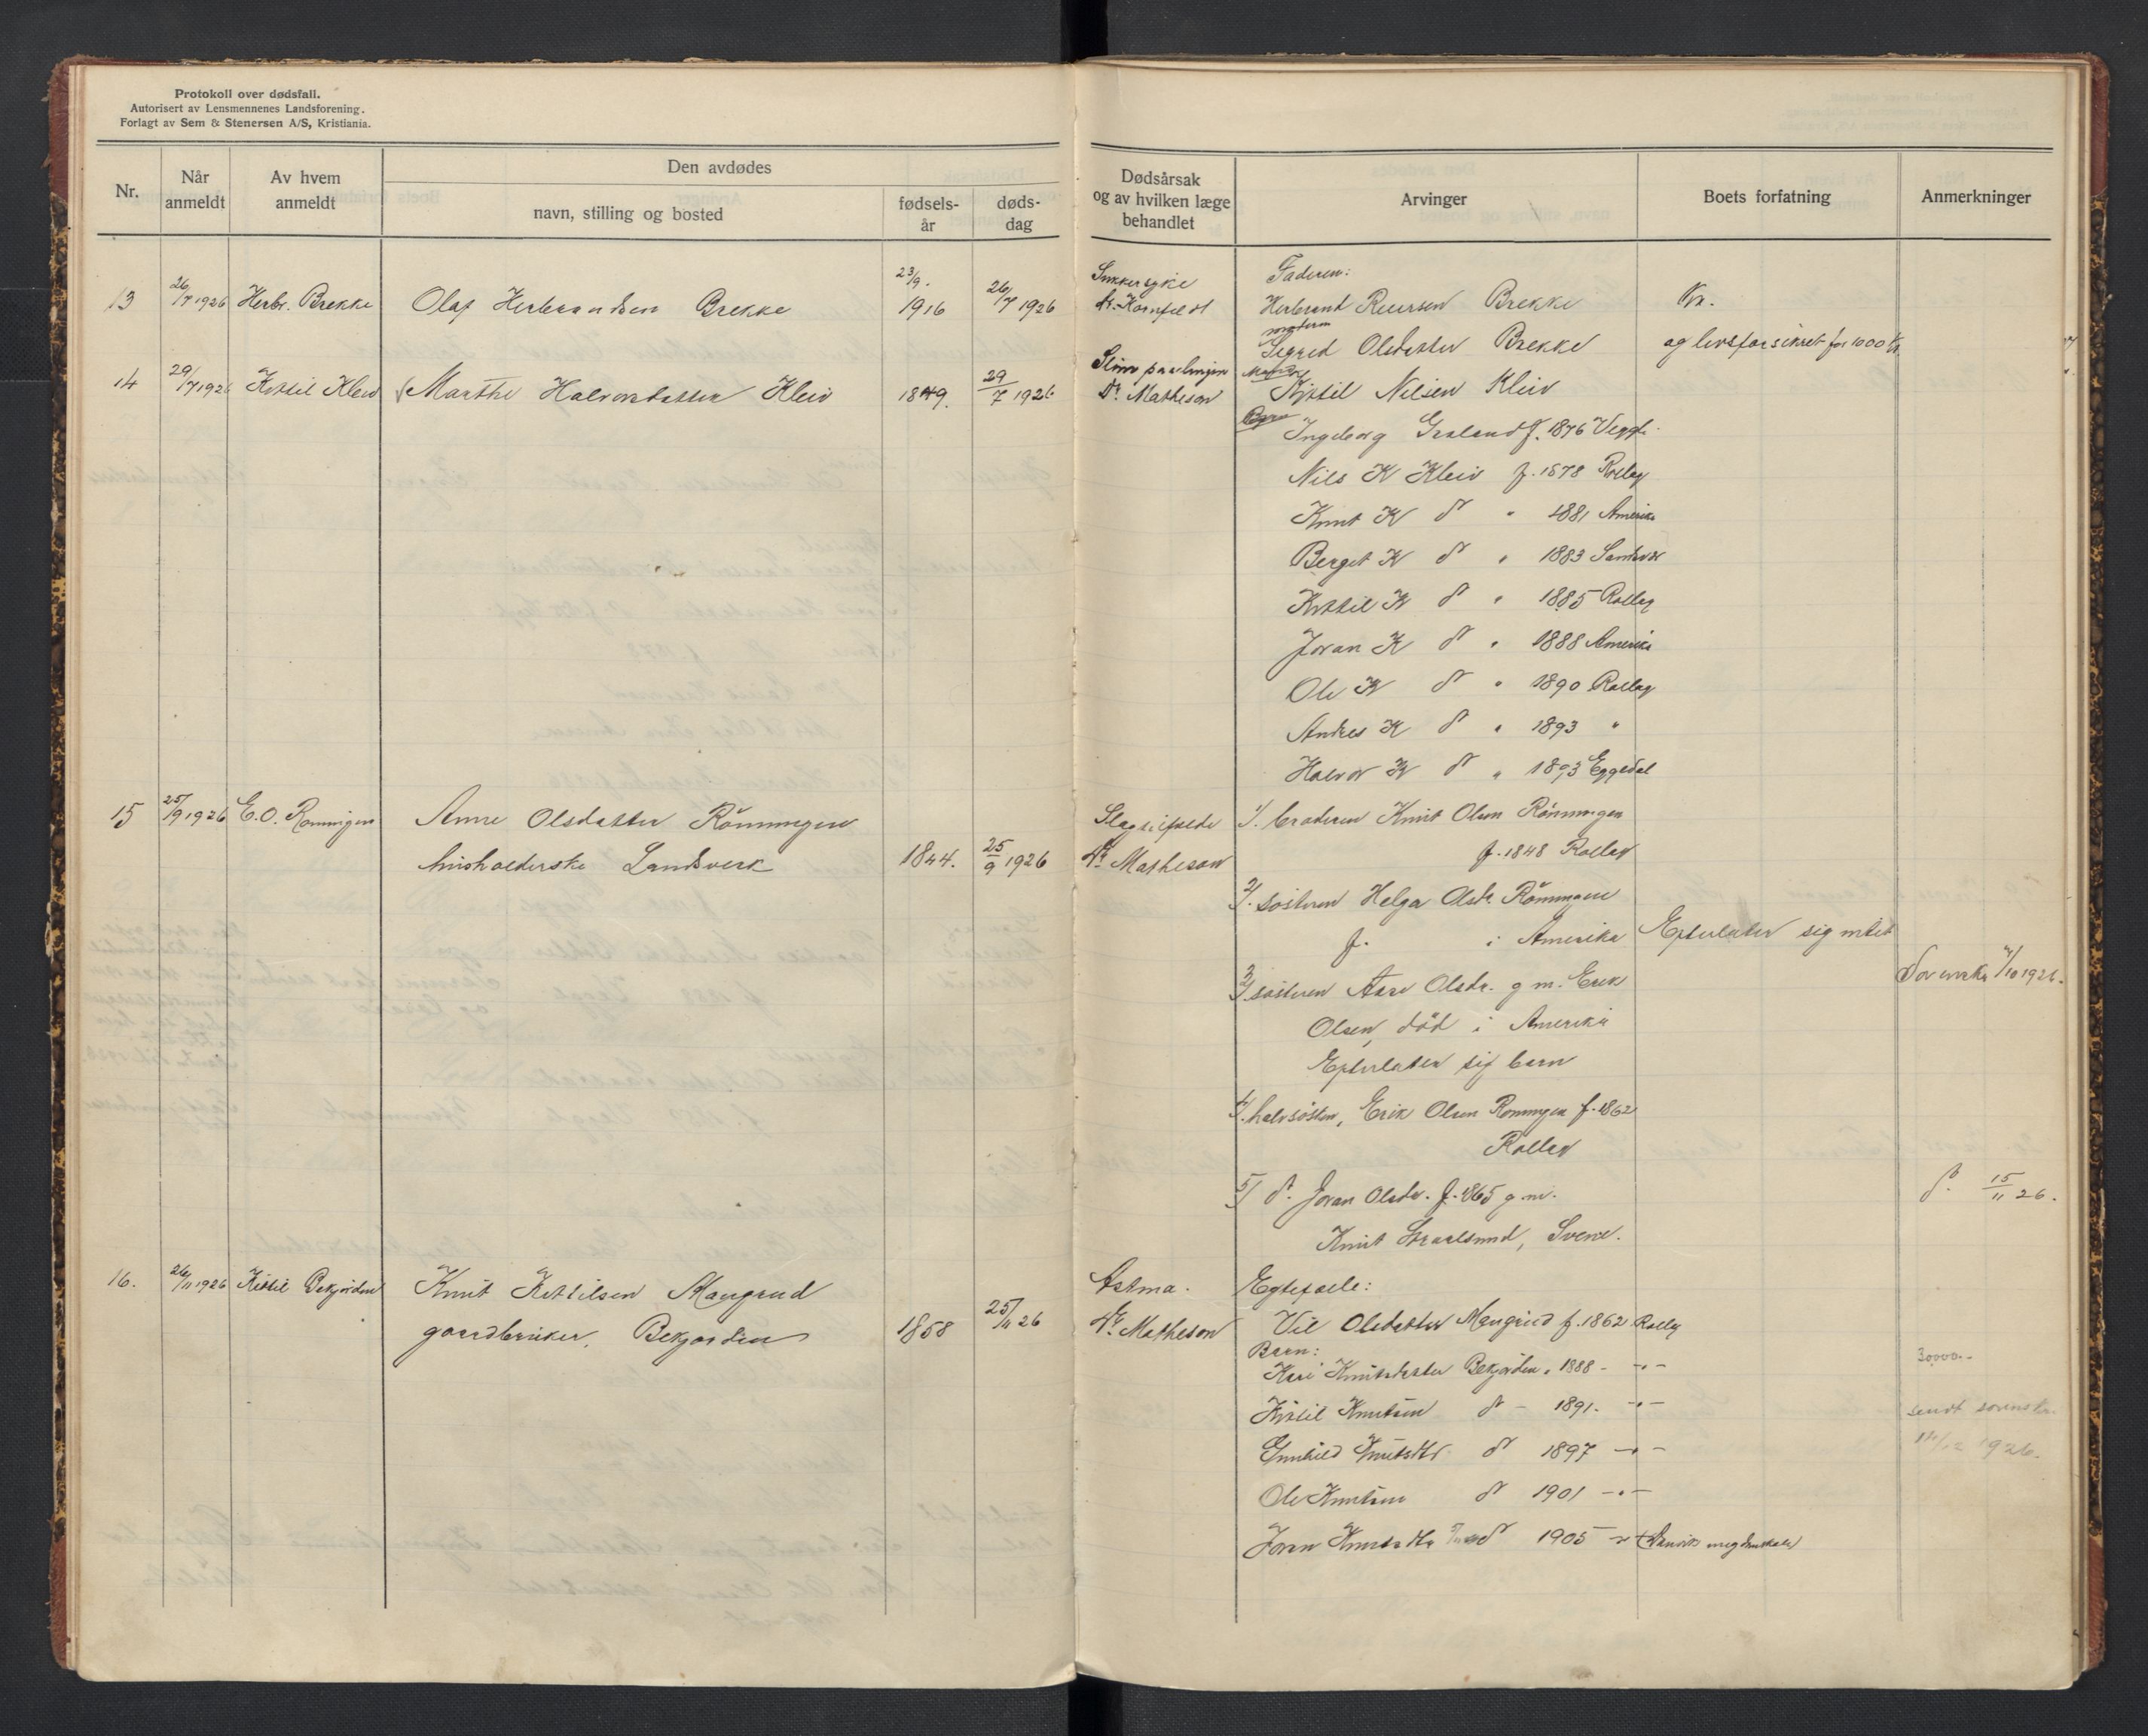 Protokoll over dødsfall.
Autorisert av Lensmennenes Landsforening.
Forlagt av Sem & Stenersen A/S, Kristiania.
Nr.
Når anmeldt
Av hvem anmeldt
Den avdødes
navn, stilling og bosted
fødsels-år
døds-dag
Dødsårsak og av hvilken læge behandlet
Arvinger
Boets forfatning
Anmerkninger
13 26/7 1926 Herbr. Brekke Olaf Herbrandsen Brekke 23/9. 1916 26/7 1926
Sukkersyke
dr. Kornfeldt
Faderen:
Herbrand Reiersen Brekke
moderen
Sigrid Olsdatter Brekke
og livsforsikret for 1000 kr.
14 29/7 1926 Kittil Kleiv Marthe Halvorsdatter Kleiv 1849. 29/7 1926
Dr. Matheson
Kittil Nilsen Kleiv
Barn
Ingeborg f. 1876 Veggli
Nils K Kleiv f. 1878 Rollag
Knut K do " 1881 Amerika
Berget K do " 1883 Sandsvær
Kittil K do " 1885 Rollag
Joran K do " 1888 Amerika
Ole K do " 1890 Rollag
Andres K do " 1893 "
Halvor K do " 1893 Eggedal
15 25/9 1926 E. O. Rønningen Anne Olsdatter Rönningen
husholderske Landsverk 1844. 25/9 1926
Slagtilfælde
Dr. Matheson
1/. broderen Knut Olsen Rönningen
f. 1848 Rollag
2/. søsteren Helga Olsdr. Rönningen
f. i Amerika
Efterlater sig intet
3/ søsteren Aase Olsdr. g. m. Erik
Olsen, död i Amerika
Efterlater sig barn
4/. halvsøsken, Erik Olsen Rønningen f. 1862
Rollag
5/ do. Joran Olsdr. f. 1865 g. m.
Knut Straalsund, Svene.
7/10 1926.
do. 15/11 26.
16. 26/11 1926 Kittil Bekjorden Knut Kittilsen Maugrud
gaardbruker, Bekjorden 1858 25/11 26
Astma.
Dr. Matheson
Egtefælle:
Olsdatter Maugrud f. 1862 Rollag
Barn:
Kari Knutsdatter Bekjorden " 1888 - - " -
Kittil Knutsen do - 1891. - " -
Gunhild Knutsdtr. do 1897 - " -
Ole Knutsen do 1901 - " -
Joran Knutsdtr do 1905
30000.-
sendt
1926.